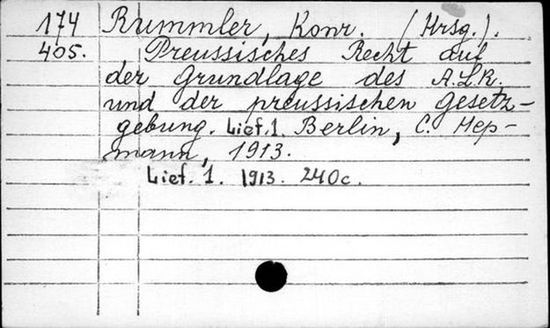 174 Rummler, Konr. (Hrsg.).
405. Preussisches Recht auf
der Grundlage des A.L.R.
und der preussischen Gesetz-
gebung. Lief. 1. Berlin, C. Hey-
mann, 1913.
Lief. 1. 1913. 240c.